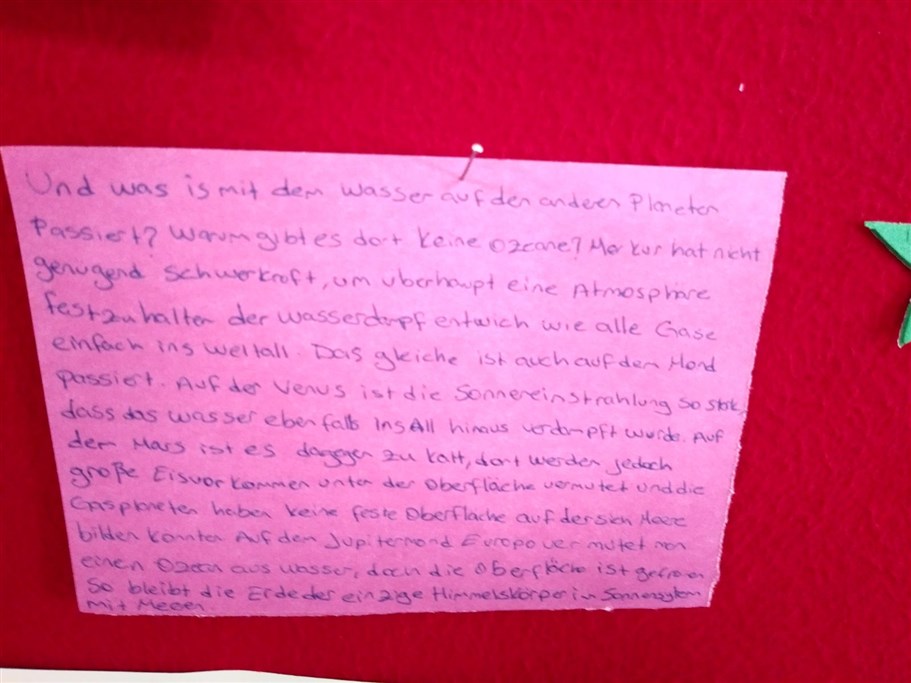 Und was is mit dem Wasser auf den anderen Planeten
Passiert? Warum gibt es dort keine Ozeane? Merkur hat nicht
genugend Schwerkraft, um uberhaupt eine Atmosphäre
festzuhalten der Wasserdampf entwich wie alle Gase
einfach ins Weltall. Das gleiche ist auch auf dem Mond
passiert. Auf der Venus ist die Sonneneinstrahlung so stark,
dass das wasser ebenfalls ins All hinaus verdampft wurde. Auf
dem Mars ist es dagegen zu kalt, dort werden jedoch
große Eisvorkommen unter der Oberfläche vermutet und die
Gasplaneten haben keine feste Oberfläche auf der sich Meere
bilden könnten Auf dem Jupitermond Europa vermutet man
einen Ozean aus wasser, doch die Oberfläche ist gefroren
So bleibt die Erde der einzige Himmelskörper im Sonnensystem
mit Meeren.